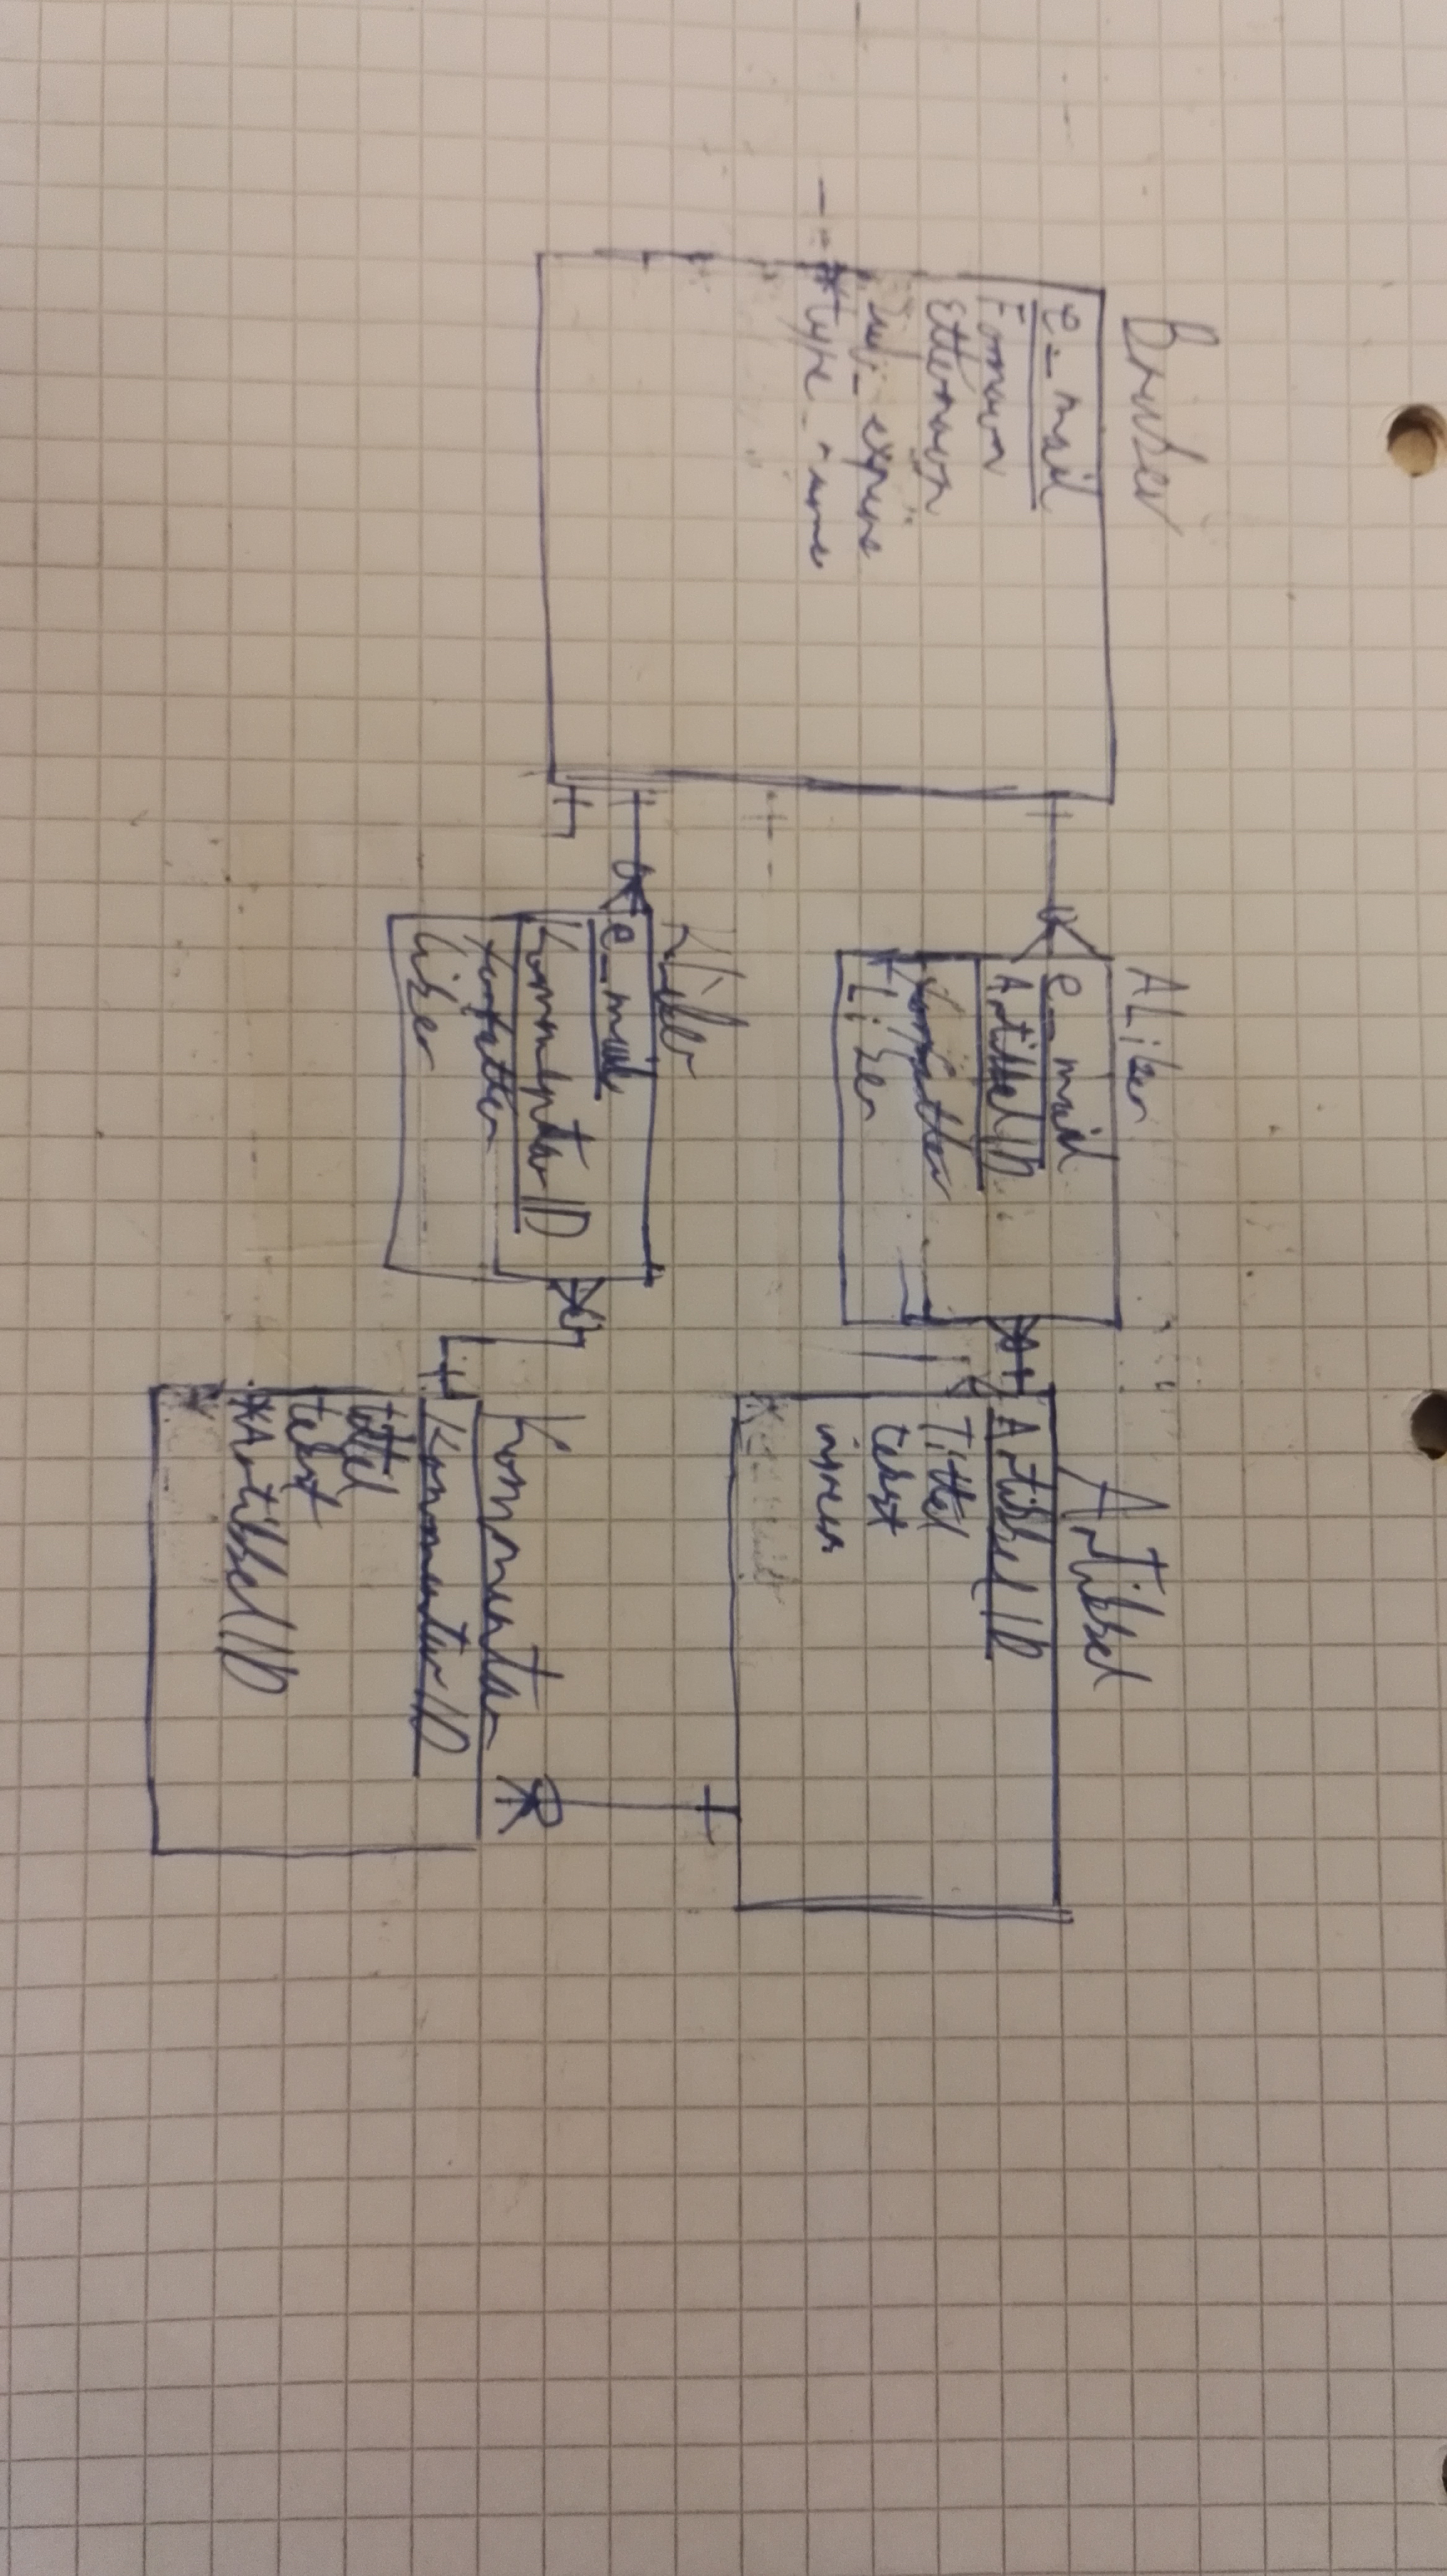 Bruker
e_mail
Fornavn
Etternavn
Sub_expire
*type_name
ALiker
e_mail
ArtikkelID
forfatter
Liker
Artikkel
ArtikkelID
Tittel
tekst
ingress
KLiker
e_mail
KommentarID
forfatter
liker
Kommentar
KommentarID
tittel
tekst
*ArtikkelID